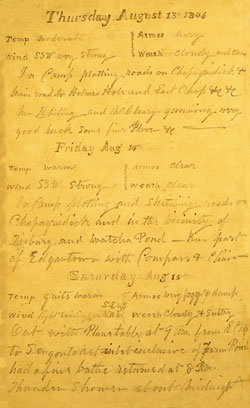 Thursday August 13th 1846
Temp moderate Atmos hazy
Wind SSW very Strong Weath cloudy and Clear
In Camp plotting roads on Chapaquidick &
main road to Holmes Hole and East Chop &c &c
Mr and McCleary gunning very
good luck Some fine Plover &c
Friday Aug 14th
Temp warm Atmos clear
Wind SSW Strong Weath clear
In Camp plotting and Sketching roads on
Chapaquidick and in the vicinity of
Tisbury and Watcha Pond — ran part
of Edgartown with Compass & Chain
Saturday Aug 15th
Temp quite warm Atmos very foggy & damp
Wind light Weath Cloudy & Sultry
Out with Plane table at 9 from
to inclusive of Pond
had a fine bathe returned at 8 Pm
Thunder Shower about Midnight